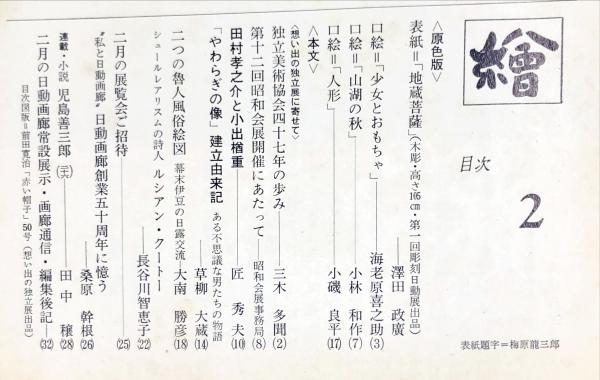 繪
目次
2
表紙題字＝梅原龍三郎
〈原色版〉
表紙＝「地蔵菩薩」（木彫・高さ105cm・第一回彫刻日動展出品）――澤田 政廣
口絵＝「少女とおもちゃ」――海老原喜之助(3)
口絵＝「山湖の秋」――小林 和作(7)
口絵＝「人形」――小磯 良平(17)
〈本文〉
〈想い出の独立展に寄せて〉
独立美術協会四十七年の歩み――三木 多聞(2)
第十二回昭和会展開催にあたって――昭和会展事務局(8)
田村孝之介と小出楢重――匠 秀夫(10)
「やわらぎの像」建立由来記 ある不思議な男たちの物語――草柳 大蔵(14)
二つの魯人風俗絵図 幕末伊豆の日露交流――大南 勝彦(18)
シュールレアリスムの詩人 ルシアン・クートー――長谷川智恵子(22)
二月の展覧会ご招待――(25)
“私と日動画廊” 日動画廊創業五十周年に憶う――桑原 幹根(26)
連載・小説 児島善三郎――田中 穣(28)
二月の日動画廊常設展示・画廊通信・編集後記――(32)
目次図版＝前田寛治「赤い帽子」50号（想い出の独立展出品）